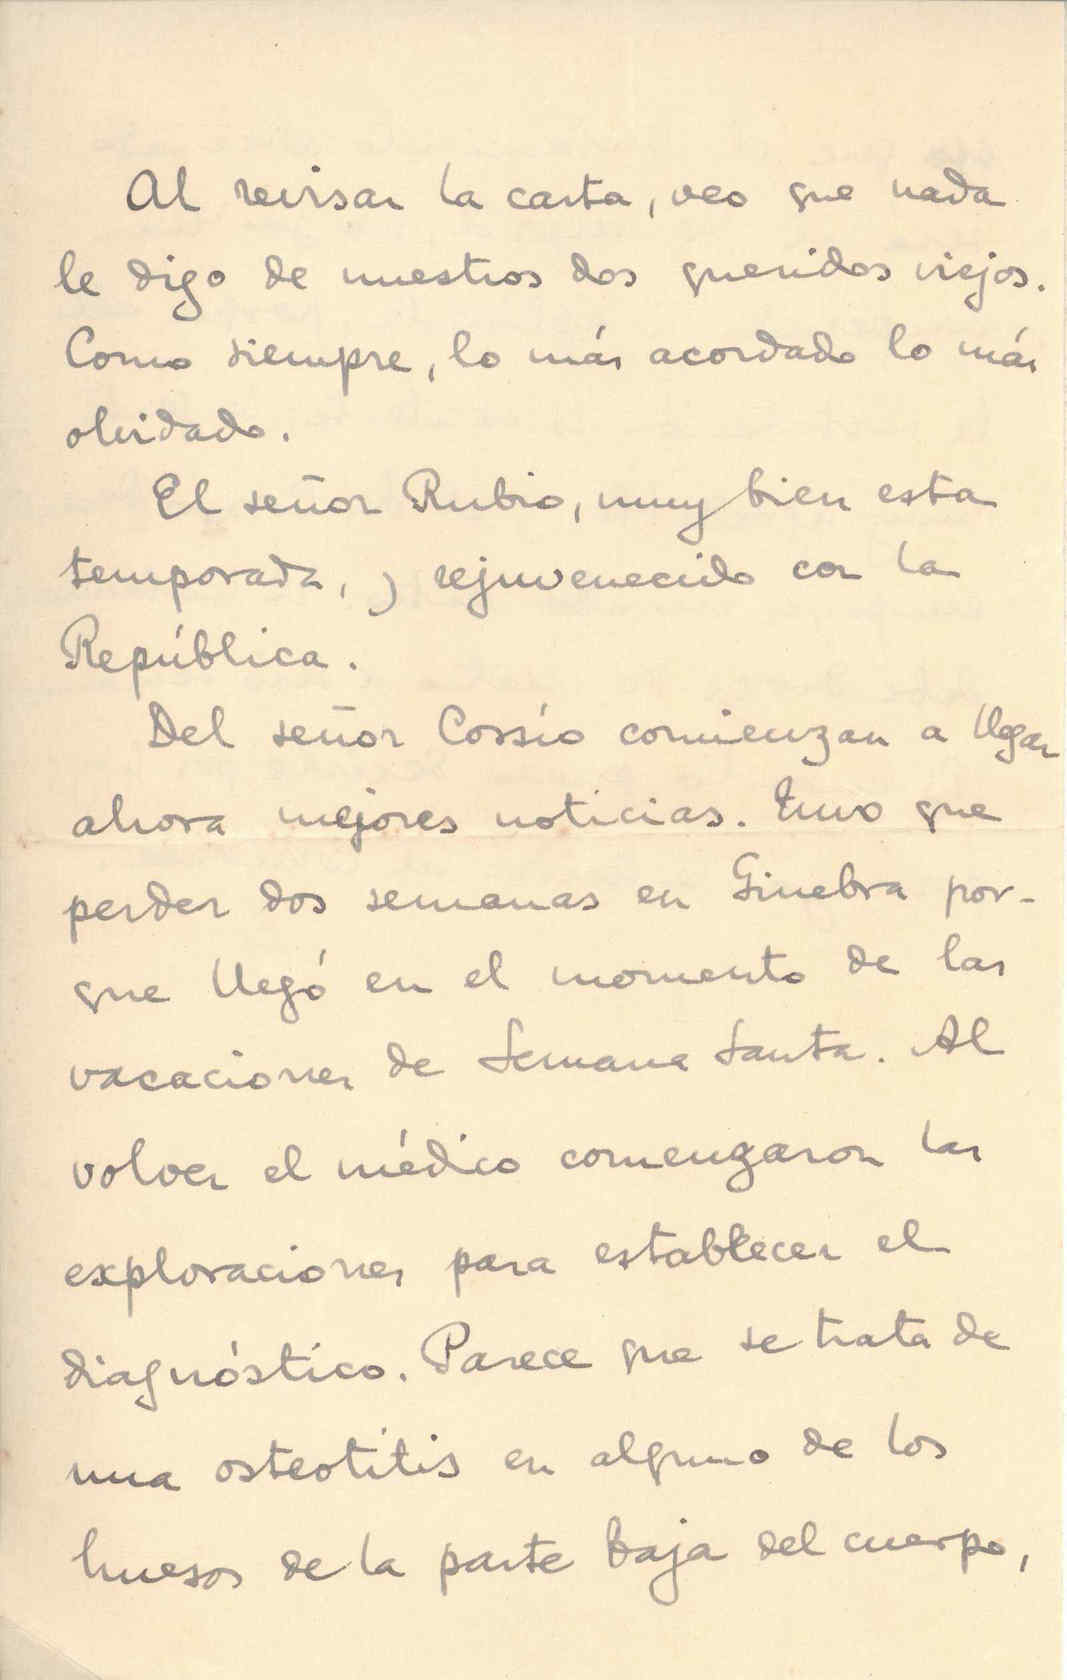 Al revisar la carta, veo que nada
le digo de nuestros dos queridos viejos.
Como siempre, lo más acordado lo más
olvidado.
El señor Rubio, muy bien esta
temporada, y rejuvenecido con la
República.
Del señor Cossío comienzan a llegar
ahora mejores noticias. Tuvo que
perder dos semanas en Ginebra por-
que llegó en el momento de las
vacaciones de Semana Santa. Al
volver el médico comenzaron las
exploraciones para establecer el
diagnóstico. Parece que se trata de
una osteotitis en alguno de los
huesos de la parte baja del cuerpo,